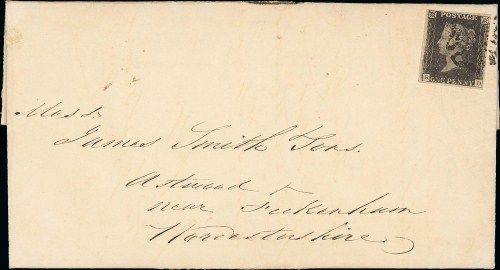 POSTAGE
ONE PENNY
Messrs
James Smith & Sons.
Astwood
near Feckenham
Worcestershire